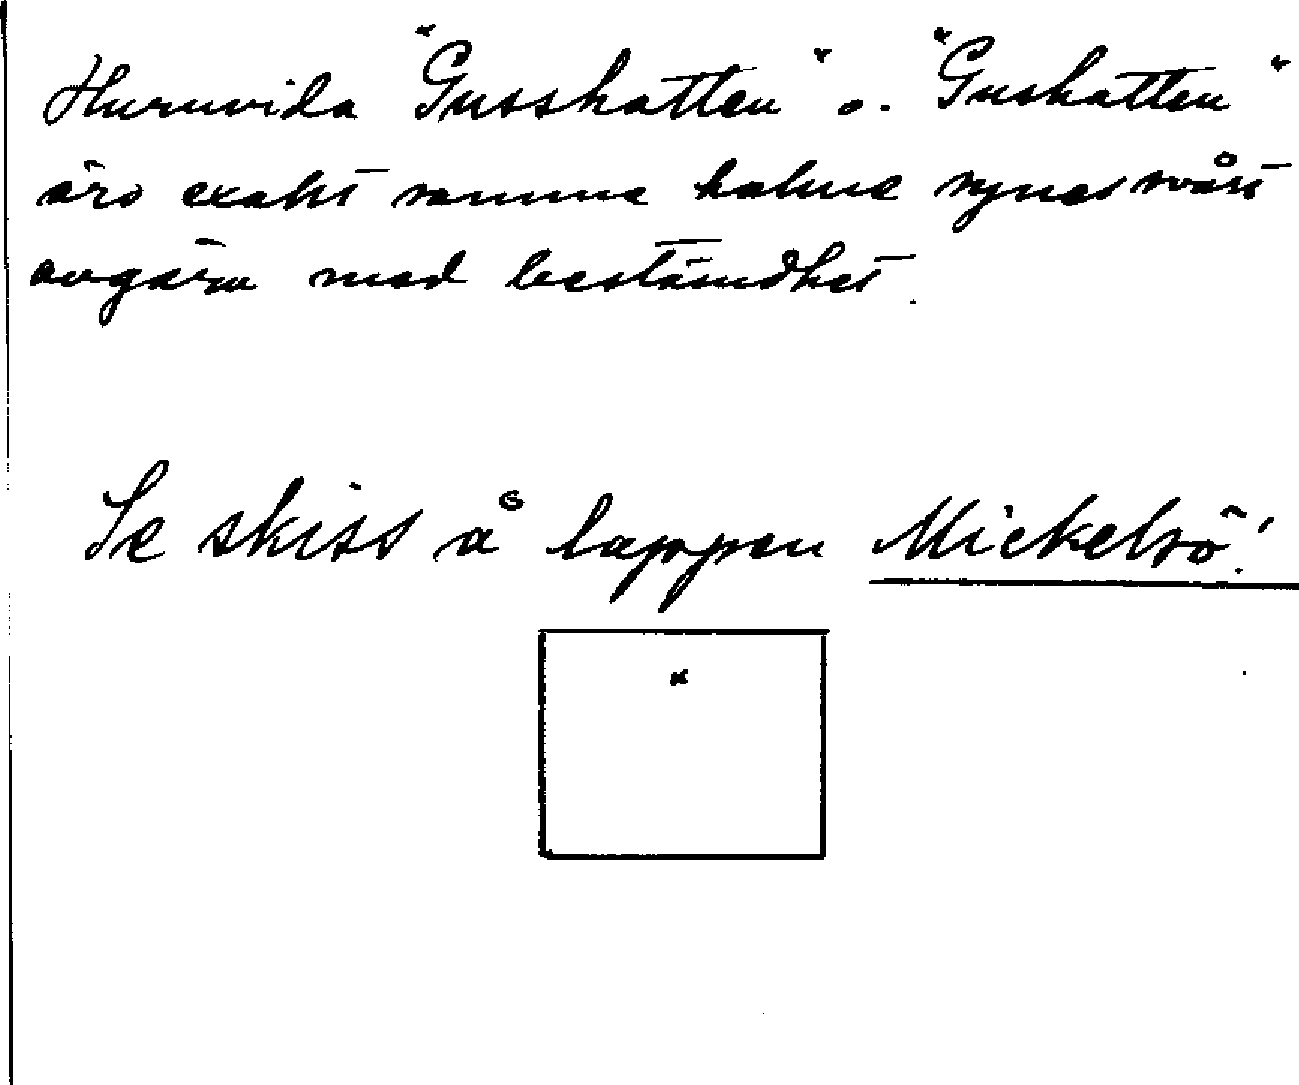 Huruvida "Gusshatten" o. "Gushatten"
äro exakt samma holme synes svårt
avgöra med bestämdhet.
Se skiss å lappen Mickelsö!
x